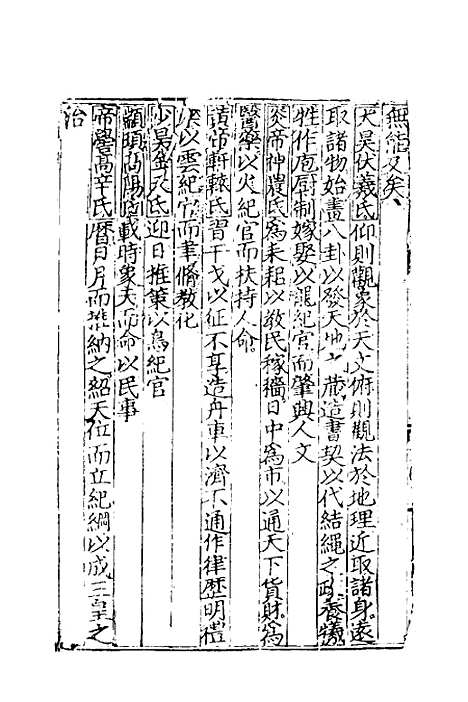 無結反矣
太昊伏羲氏仰則觀象於天文俯則觀法於地理近取諸身遠
取諸物始畫八卦以發天地之藏造書契以代結繩之政養犧
牲作庖厨制嫁娶以龍紀官而肇興人文
炎帝神農氏爲耒耜以敎民稼穡日中爲市以通天下貨財爲
醫藥以火紀官而扶持人命
黃帝軒轅氏習干戈以征不享造舟車以濟不通作律歷明禮
以雲紀官而筆脩敎化
少昊金天氏迎日推策以鳥紀官
顓頊高陽氏載時象天而命以民事
帝嚳高辛氏曆日月而推納之紹天位而立紀綱以成三皇之
治